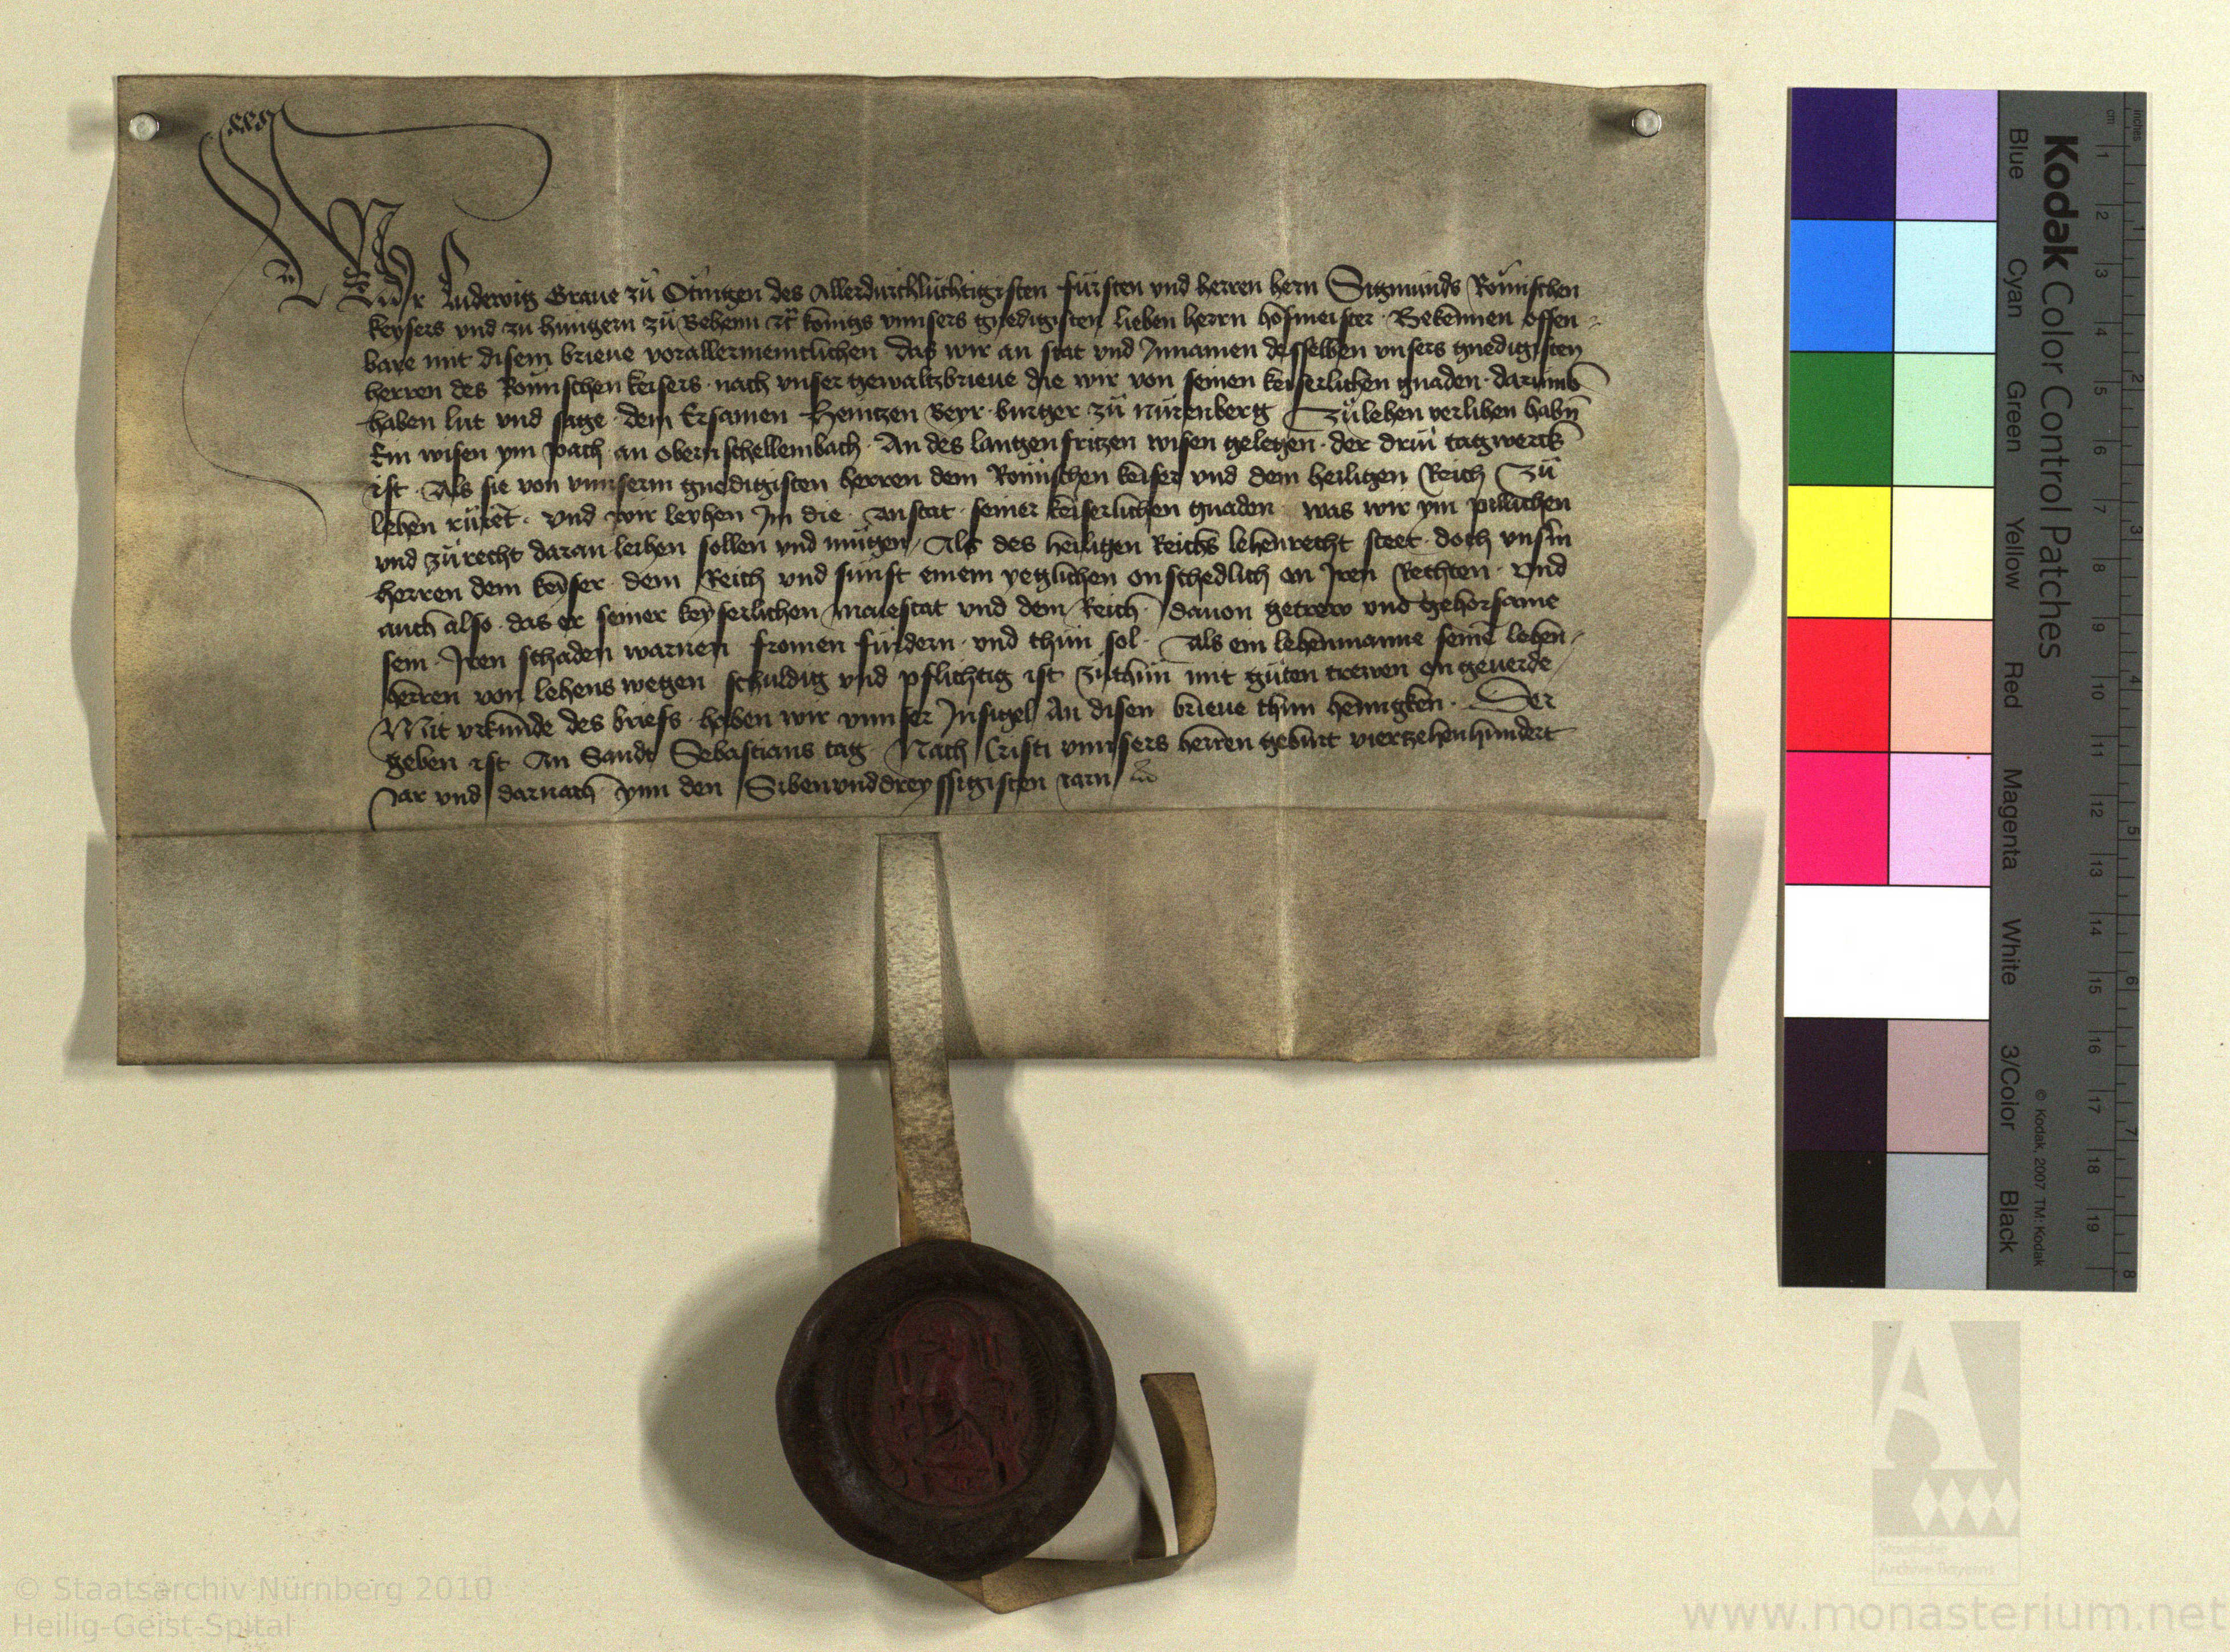 Wir Ludewig Graue zů Otingen des Allerdurchlüchtigisten fürsten vnd herren hern Sigmunds Römischen
keysers vnd zu hungern zů Behem ꝛc̃ konigs vnnsers gnedigisten lieben herrn hofmeister · Bekennen offen-
bare mit disem brieue vorallermeniclichen das wir an stat vnd Innamen desselben vnsers gnedigisten
herren des Römischen keisers · nach vnser gewaltzbrieue die wir von seinen keiserlichen gnaden · darumb
haben lut vnd sage · dem Ersamen Heintzen Beyr · burger zů Nürenberg Zůlehen verlihen habn̄
Ein wisen ym pach an obern schellembach · An des langen fritzen wisen gelegen · der driü tagwerck
ist · Als sie von vnnserm gnedigisten herren dem Römischen keiser vnd dem heiligen Reich Zů
lehen rüret · vnd wir leyhen Im die · anstat · seiner keiserlichen gnaden was wir ym pillichen
vnd zůrecht daran leihen sollen vnd mügen / Als des heiligen Reichs lehenrecht steet · doch vnsm̄
herren dem keyser · dem Reich vnd sunst einem yeglichen onschedlich an Iren Rechten · vnd
auch also · das er seiner keyserlichen maiestat vnd dem Reich · dauon getrew vnd gehorsame
sein · Iren schaden warnen fromen fürdern · vnd thun sol · Als ein lehenmanne seinē lehen-
herren von lehens wegen schuldig vnd pflichtig ist zuthün mit güten trewen on geuerde /
Mit vrkunde des briefs · haben wir vnnser Insigel An disen brieue thun henngken · Der
geben ist An Sandt Sebastians tag Nach Cristi vnnsers herren geburt vierzehenhundert
Jar vnd darnach ynn den Sibenvnddreyssigisten iarn
Kodak Color Control Patches
Blue Cyan Green Yellow Red Magenta White 3/Color Black
© Kodak, 2007 TM: Kodak
inches 1 2 3 4 5 6 7 8
cm 1 2 3 4 5 6 7 8 9 10 11 12 13 14 15 16 17 18 19
© Staatsarchiv Nürnberg 2010
Heilig-Geist-Spital
Staatliche
Archive Bayerns
www.monasterium.net